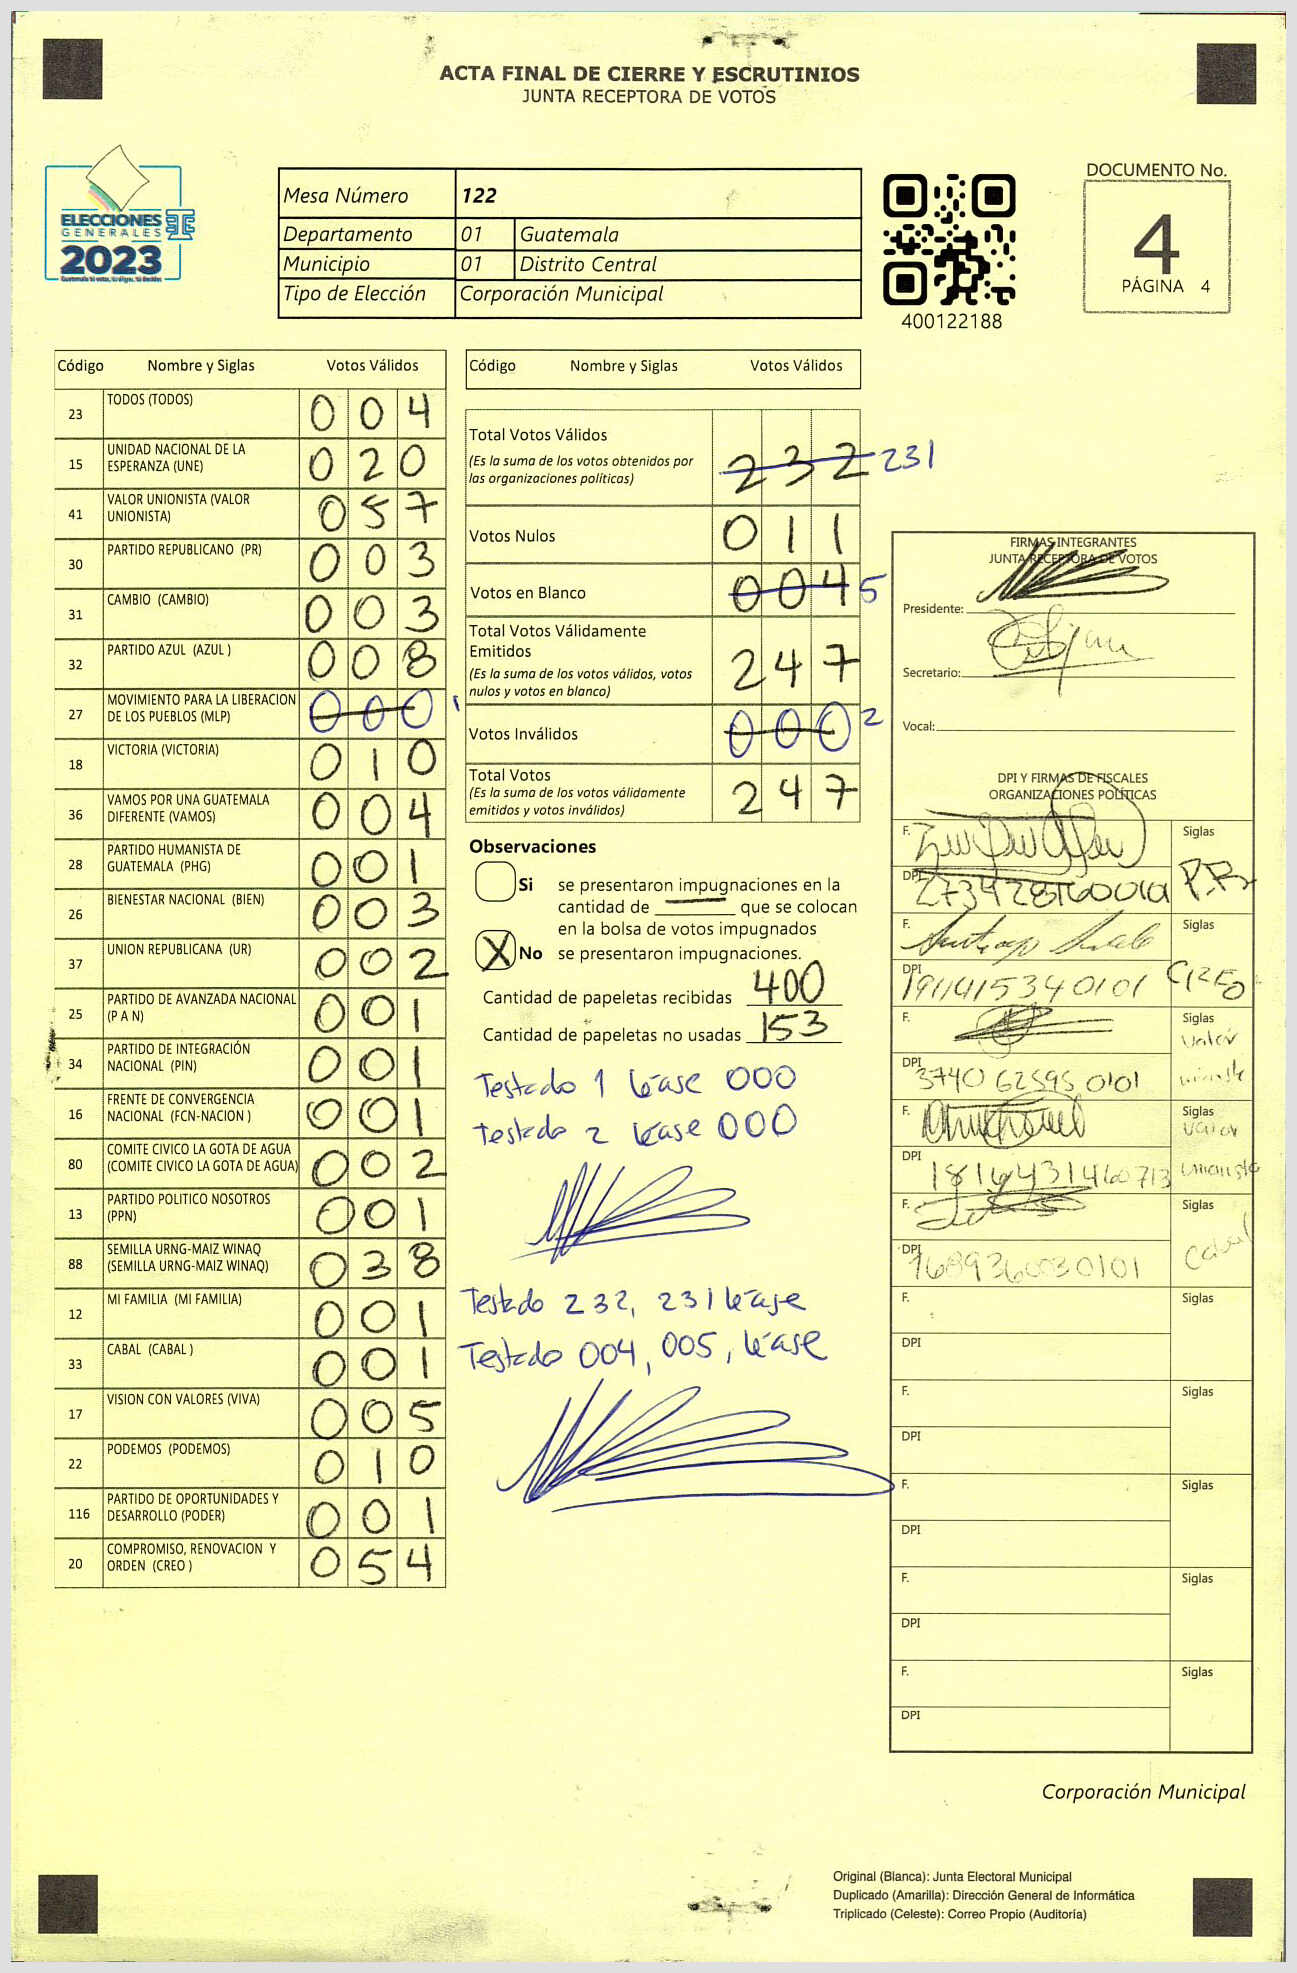 ACTA FINAL DE CIERRE Y ESCRUTINIOS
JUNTA RECEPTORA DE VOTOS
ELECCIONES
GENERALES
2023
Mesa Número 122
Departamento 01 Guatemala
Municipio 01 Distrito Central
Tipo de Elección Corporación Municipal
400122188
DOCUMENTO No.
4
PÁGINA 4
Código Nombre y Siglas Votos Válidos
23 TODOS (TODOS) 0 0 4
15 UNIDAD NACIONAL DE LA ESPERANZA (UNE) 0 2 0
41 VALOR UNIONISTA (VALOR UNIONISTA) 0 5 7
30 PARTIDO REPUBLICANO (PR) 0 0 3
31 CAMBIO (CAMBIO) 0 0 3
32 PARTIDO AZUL (AZUL ) 0 0 8
27 MOVIMIENTO PARA LA LIBERACION DE LOS PUEBLOS (MLP) 0 0 0 1
18 VICTORIA (VICTORIA) 0 1 0
36 VAMOS POR UNA GUATEMALA DIFERENTE (VAMOS) 0 0 4
28 PARTIDO HUMANISTA DE GUATEMALA (PHG) 0 0 1
26 BIENESTAR NACIONAL (BIEN) 0 0 3
37 UNION REPUBLICANA (UR) 0 0 2
25 PARTIDO DE AVANZADA NACIONAL (P A N) 0 0 1
34 PARTIDO DE INTEGRACIÓN NACIONAL (PIN) 0 0 1
16 FRENTE DE CONVERGENCIA NACIONAL (FCN-NACION ) 0 0 1
80 COMITE CIVICO LA GOTA DE AGUA (COMITE CIVICO LA GOTA DE AGUA) 0 0 2
13 PARTIDO POLITICO NOSOTROS (PPN) 0 0 1
88 SEMILLA URNG-MAIZ WINAQ (SEMILLA URNG-MAIZ WINAQ) 0 3 8
12 MI FAMILIA (MI FAMILIA) 0 0 1
33 CABAL (CABAL ) 0 0 1
17 VISION CON VALORES (VIVA) 0 0 5
22 PODEMOS (PODEMOS) 0 1 0
116 PARTIDO DE OPORTUNIDADES Y DESARROLLO (PODER) 0 0 1
20 COMPROMISO, RENOVACION Y ORDEN (CREO ) 0 5 4
Código Nombre y Siglas Votos Válidos
Total Votos Válidos 2 3 2 231
(Es la suma de los votos obtenidos por
las organizaciones políticas)
Votos Nulos 0 1 1
Votos en Blanco 0 0 4 5
Total Votos Válidamente
Emitidos 2 4 7
(Es la suma de los votos válidos, votos
nulos y votos en blanco)
Votos Inválidos 0 0 0 2
Total Votos 2 4 7
(Es la suma de los votos válidamente
emitidos y votos inválidos)
Observaciones
Si se presentaron impugnaciones en la
cantidad de ____ que se colocan
en la bolsa de votos impugnados
X No se presentaron impugnaciones.
Cantidad de papeletas recibidas 400
Cantidad de papeletas no usadas 153
Testado 1 léase 000
Testado 2 léase 000
Testado 232, 231 léase
Testado 004, 005, léase
FIRMAS INTEGRANTES
JUNTA RECEPTORA DE VOTOS
Presidente:
Secretario:
Vocal:
DPI Y FIRMAS DE FISCALES
ORGANIZACIONES POLÍTICAS
F. Siglas
DPI P.R
F. Siglas
DPI 1911415340101 CREO
F. Siglas valor
DPI 3740 62595 0101 unionista
F. Siglas valor
DPI 1816431460713 unionista
F. Siglas
DPI 7689360030101 Cabal
F. Siglas
DPI
F. Siglas
DPI
F. Siglas
DPI
F. Siglas
DPI
F. Siglas
DPI
Corporación Municipal
Original (Blanca): Junta Electoral Municipal
Duplicado (Amarilla): Dirección General de Informática
Triplicado (Celeste): Correo Propio (Auditoría)